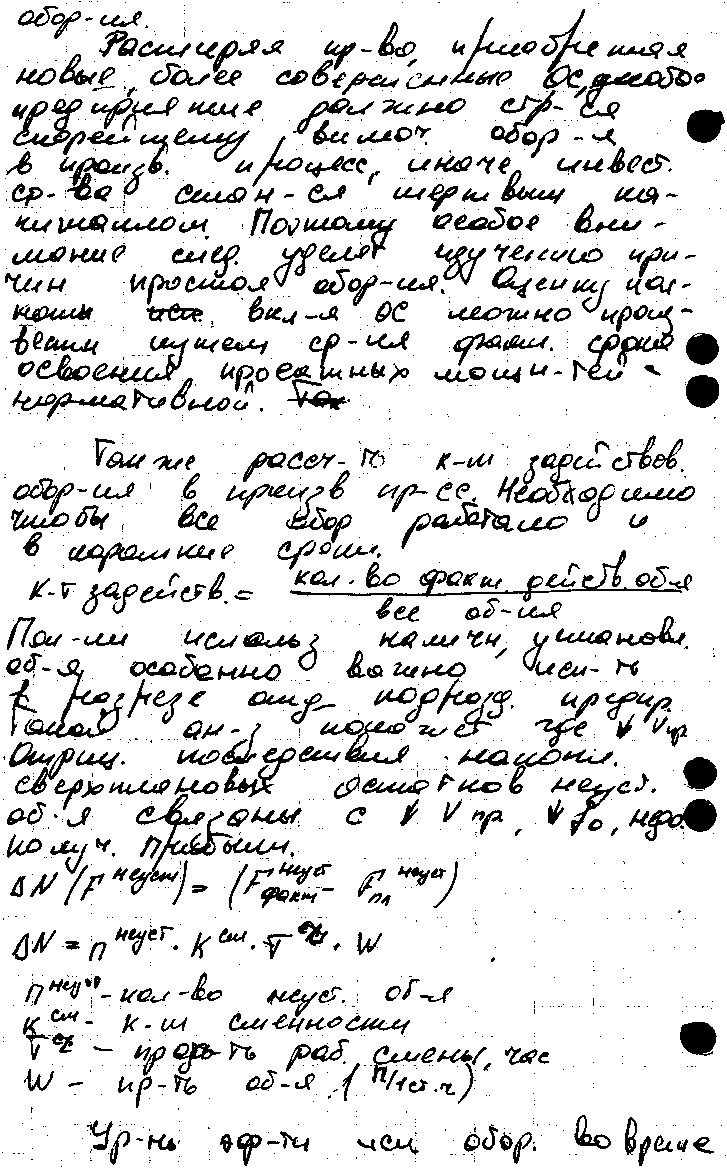 обор-ия.
Расширяя пр-во, приобретая
новые, более совершенные ОС, любое
предприятие должно стр-ся
скорейшему включ. обор-я
в произв. процесс, иначе инвест.
ср-ва стан-ся мертвым ка-
питалом. Поэтому особое вни-
мание след. уделят изучению при-
чин простоя обор-ия. Оценку пол-
ноты вкл-я ОС можно произ-
вести путем ср-ия факт. срока
освоения проектных мощн-тей с
нормативной.
Также рассч-ть к-т задействов.
обор-ия в произв пр-сс. Необходимо
чтобы все обор работало и
в короткие сроки.
К-т задейств. = кол-во факт действ. об-я
все об-ия
Пол-ми использ наличн, установл.
об-я особенно важно исп-ть
в разрезе отд. подразд. предпр.
Такой ан-з покажет где ↓ Vпр
Отриц. последствия накопл.
сверхплановых остатков неуст.
об-я связаны с ↓ V пр, ↓ fо, недо
получ. прибыли.
ΔN (F неуст) = (F неуст факт - F пл неуст)
ΔN = n неуст · К см · T · W
n неуст - кол-во неуст. об-я
К см - к-т сменности
T - прод-ть раб. смены, час
W - пр-ть об-я (п/1ст.ч)
Ур-нь эф-ти исп обор. во време